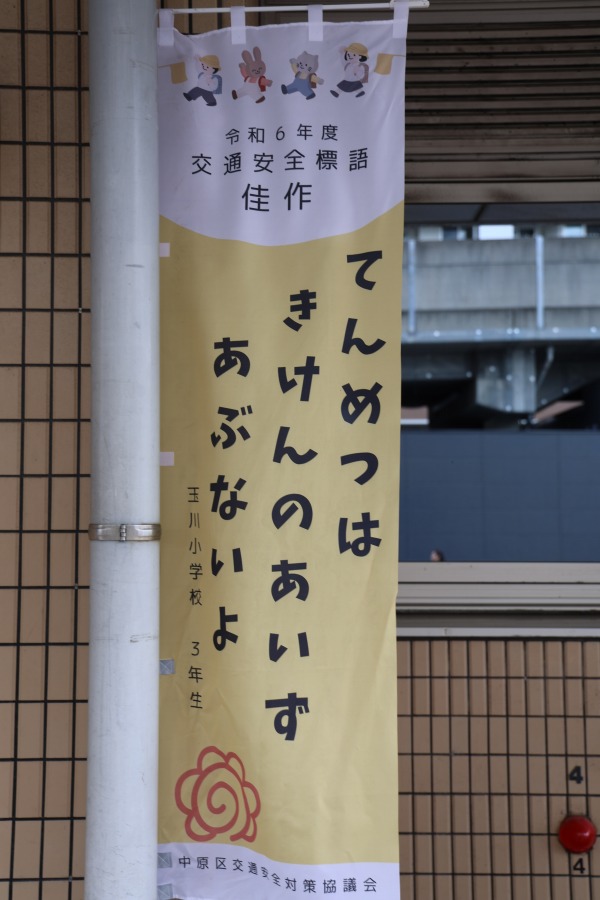 令和6年度
交通安全標語
佳作
てんめつは
きけんのあいず
あぶないよ
玉川小学校 3年生
中原区交通安全対策協議会
4
4